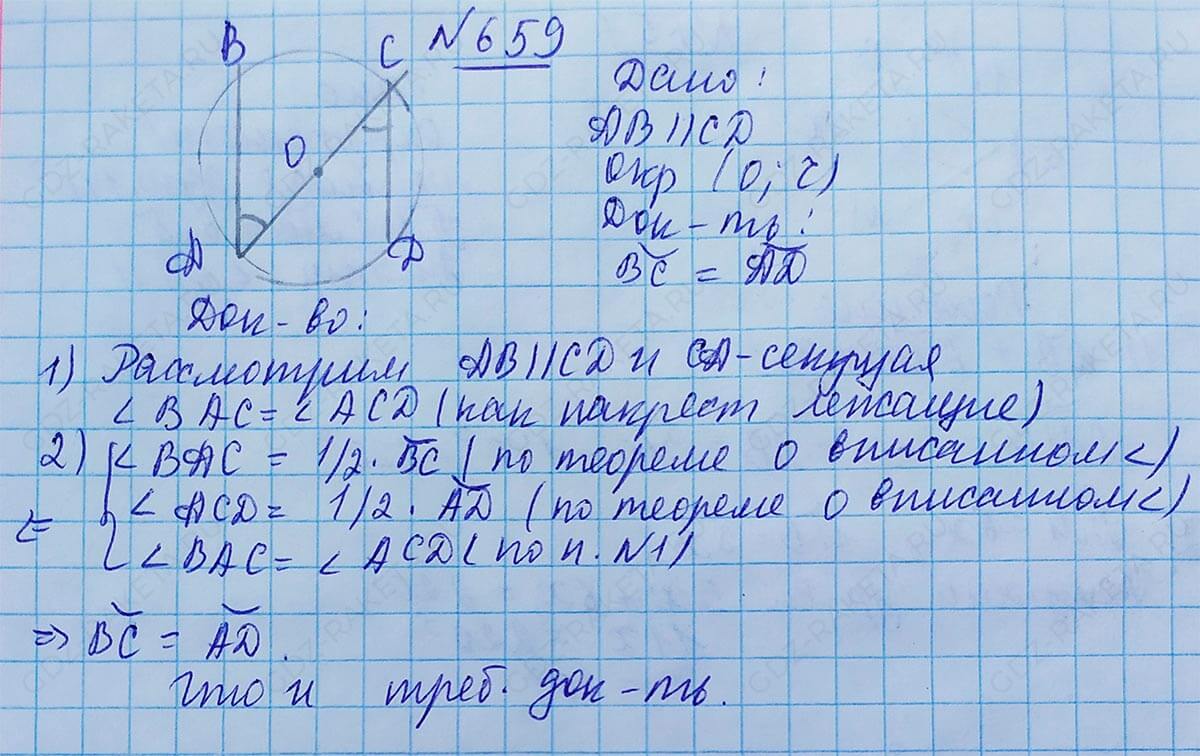 N659
B
C
O
A
D
Дано:
AB || CD
Окр (O; r)
Док-ть:
BC = AD
Док-во:
1) Рассмотрим AB||CD и CA-секущая
∠BAC = ∠ACD (как накрест лежащие)
2) { ∠BAC = 1/2 · BC (по теореме о вписанном ∠)
∠ACD = 1/2 · AD (по теореме о вписанном ∠)
∠BAC = ∠ACD (по п. N1)
=> BC = AD.
Что и треб. док-ть.
GDZ-RAKETA.RU